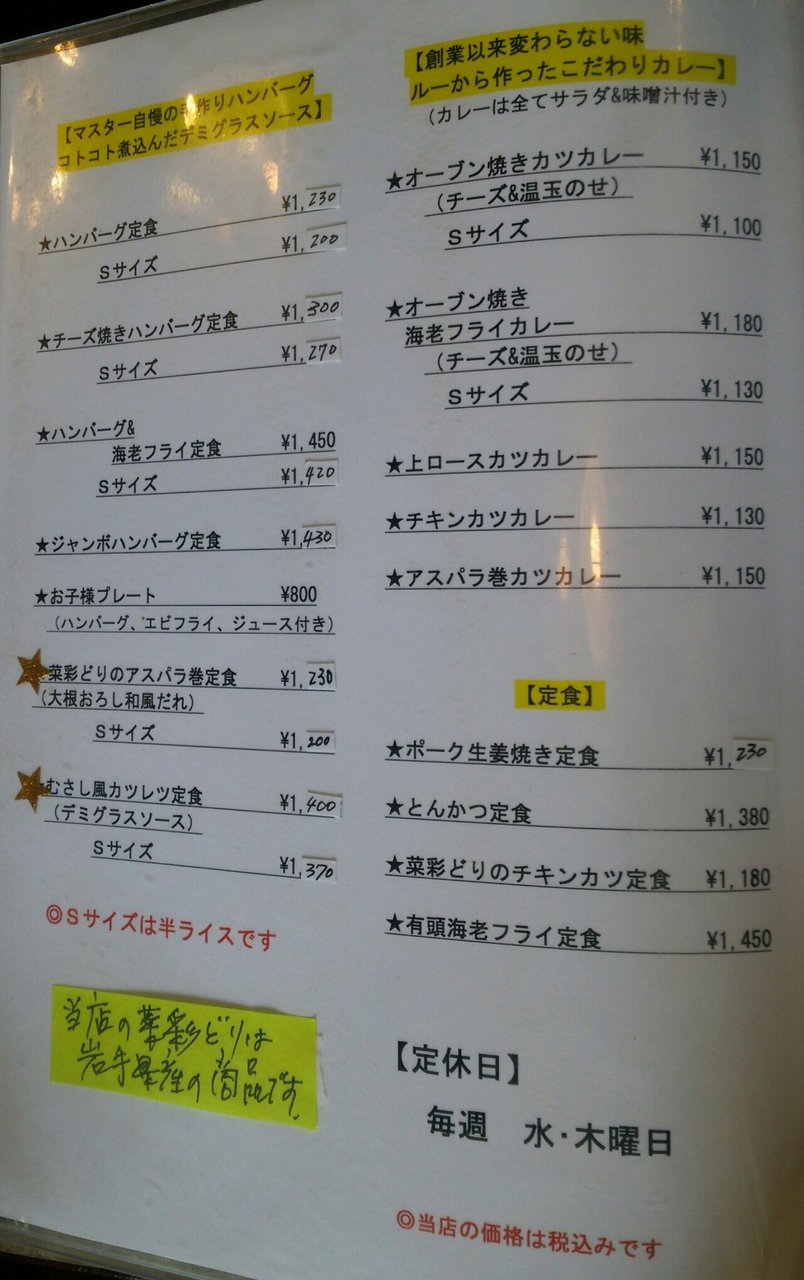 【マスター自慢の手作りハンバーグ
コトコト煮込んだデミグラスソース】
★ハンバーグ定食 ¥1,230
Sサイズ ¥1,200
★チーズ焼きハンバーグ定食 ¥1,300
Sサイズ ¥1,270
★ハンバーグ&
海老フライ定食 ¥1,450
Sサイズ ¥1,420
★ジャンボハンバーグ定食 ¥1,430
★お子様プレート ¥800
(ハンバーグ、エビフライ、ジュース付き)
菜彩どりのアスパラ巻定食 ¥1,230
(大根おろし和風だれ)
Sサイズ ¥1,200
むさし風カツレツ定食 ¥1,400
(デミグラスソース)
Sサイズ ¥1,370
◎Sサイズは半ライスです
当店の菜彩どりは
岩手県産の商品です。
【創業以来変わらない味
ルーから作ったこだわりカレー】
(カレーは全てサラダ&味噌汁付き)
★オーブン焼きカツカレー ¥1,150
(チーズ&温玉のせ)
Sサイズ ¥1,100
★オーブン焼き
海老フライカレー ¥1,180
(チーズ&温玉のせ)
Sサイズ ¥1,130
★上ロースカツカレー ¥1,150
★チキンカツカレー ¥1,130
★アスパラ巻カツカレー ¥1,150
【定食】
★ポーク生姜焼き定食 ¥1,230
★とんかつ定食 ¥1,380
★菜彩どりのチキンカツ定食 ¥1,180
★有頭海老フライ定食 ¥1,450
【定休日】
毎週 水・木曜日
◎当店の価格は税込みです